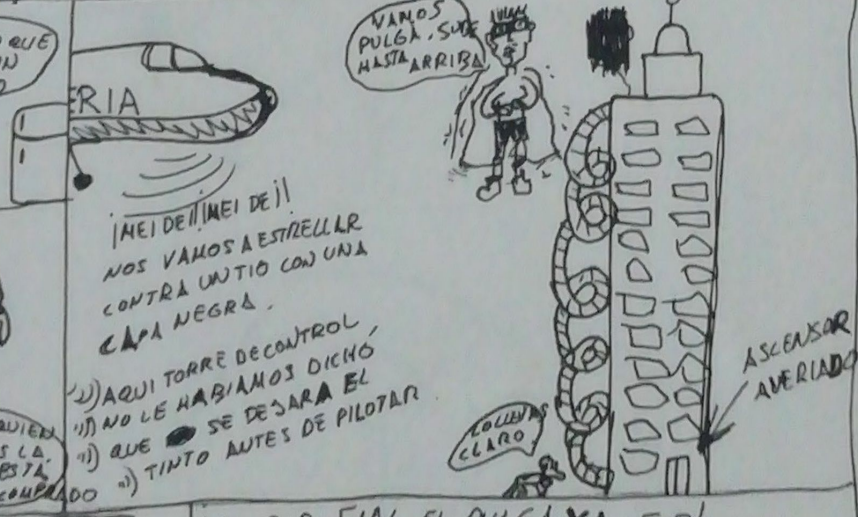 QUE
ERIA
VAMOS
PULGA, SUBE
HASTA ARRIBA
¡MEI DE!! ¡MEI DE!!
NOS VAMOS A ESTRELLAR
CONTRA UN TIO CON UNA
CAPA NEGRA.
AQUI TORRE DE CONTROL,
NO LE HABIAMOS DICHO
QUE SE DEJARA EL
TINTO ANTES DE PILOTAR
ASCENSOR
AVERIADO
CLARO.
QUIEN
S LA
ESTA
COMPRADO